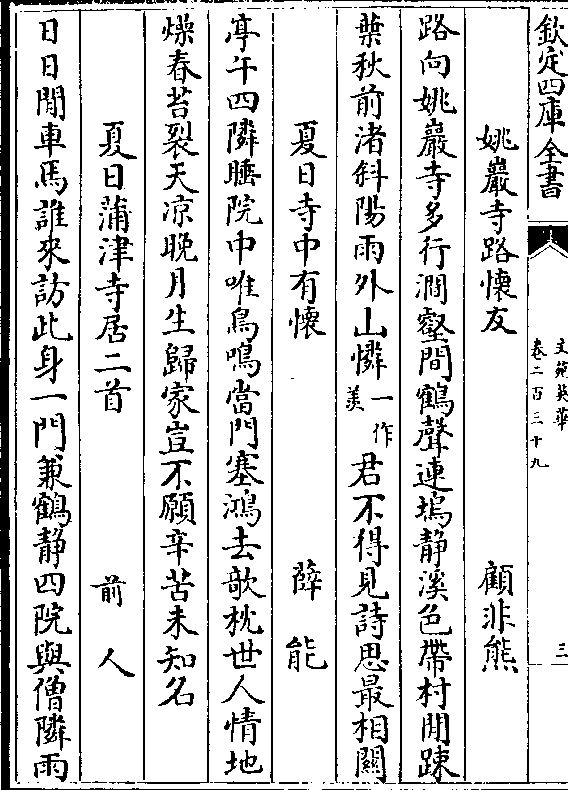 欽定四庫全書
文苑英華
卷二百三十九
三
姚巖寺路懷友
顧非熊
路向姚巖寺多行澗壑間鶴聲連塢静溪色帶村閒踈
葉秋前渚斜陽雨外山憐一作羡君不得見詩思最相關
夏日寺中有懷
薛能
亭午四隣睡院中唯鳥鳴當門塞鴻去欹枕世人情地
燥春苔裂天凉晚月生歸家豈不願辛苦未知名
夏日蒲津寺居二首
前人
日日閒車馬誰來訪此身一門兼鶴静四院與僧隣雨